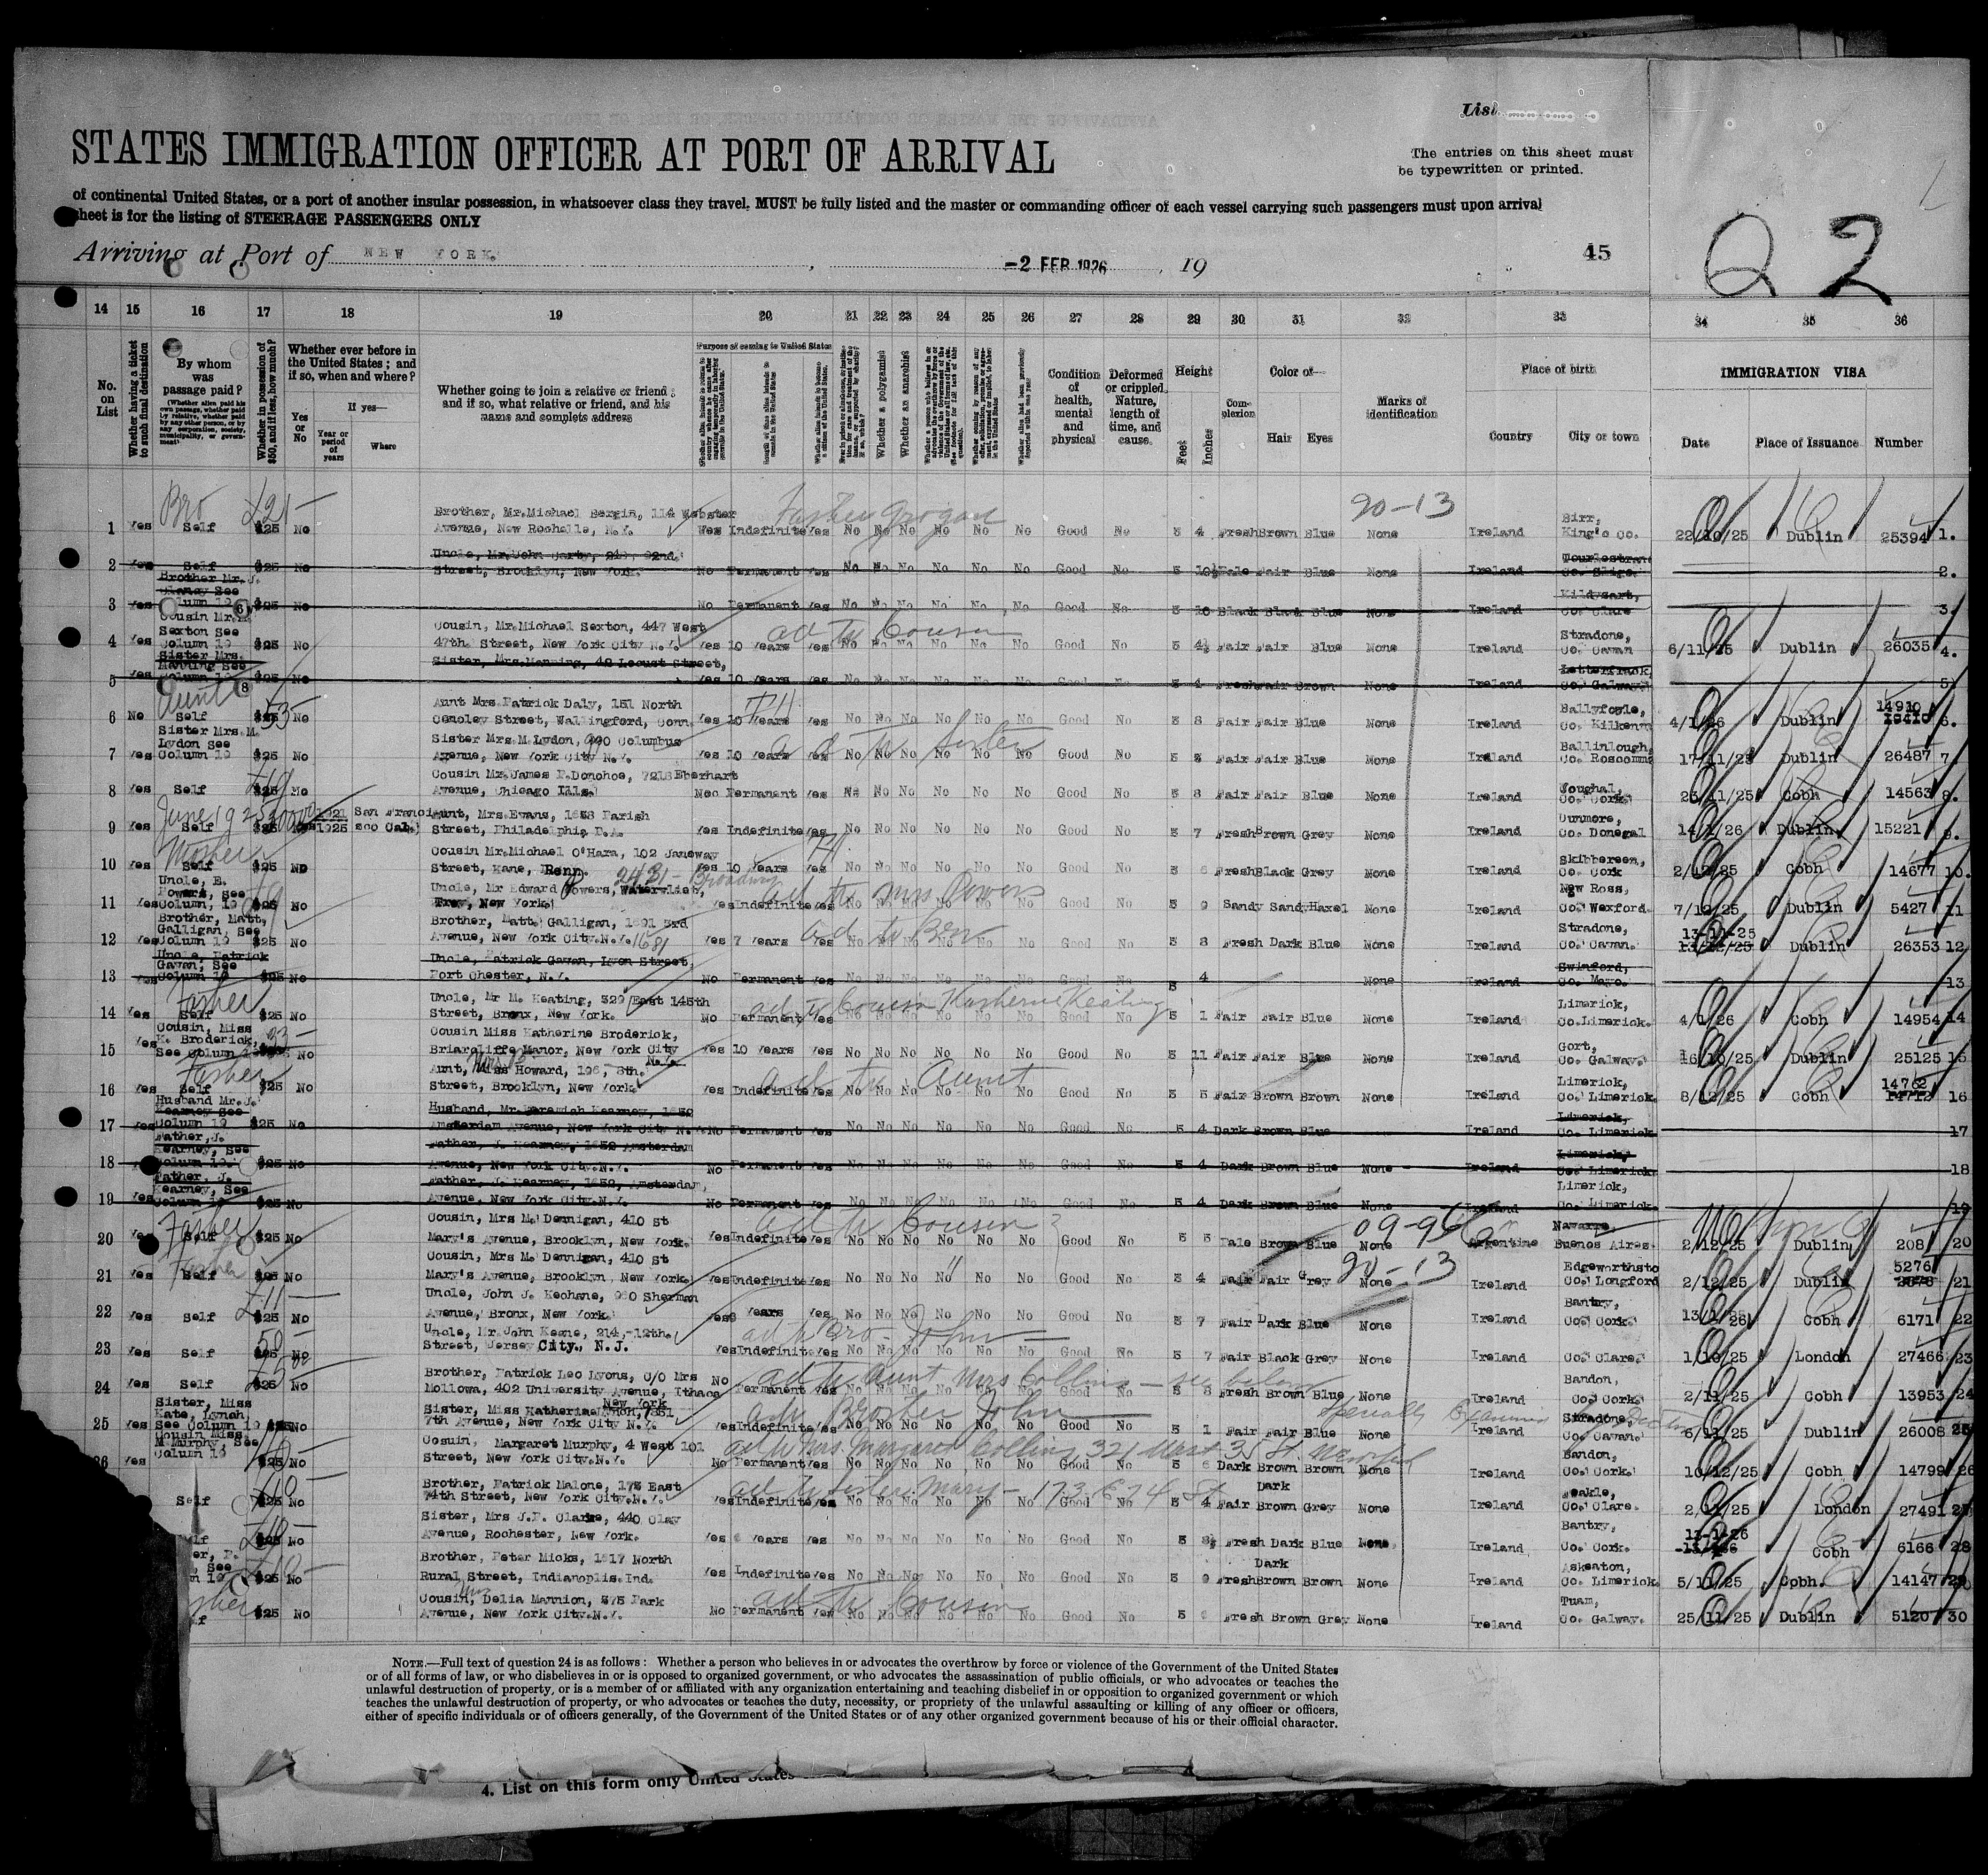 List
STATES IMMIGRATION OFFICER AT PORT OF ARRIVAL
The entries on this sheet must
be typewritten or printed.
of continental United States, or a port of another insular possession, in whatsoever class they travel, MUST be fully listed and the master or commanding officer of each vessel carrying such passengers must upon arrival
sheet is for the listing of STEERAGE PASSENGERS ONLY
Q 2
Arriving at Port of NEW YORK. , -2 FEB 1926 , 19
45
14 15 16 17 18 19 20 21 22 23 24 25 26 27 28 29 30 31 32 33 34 35 36
No. on List
Whether having a ticket to such final destination
By whom was passage paid?
(Whether alien paid his own passage, whether paid by relative, whether paid by any other person, or by any corporation, society, municipality, or government)
Whether in possession of $50, and if less, how much?
Whether ever before in the United States; and if so, when and where?
Yes or No
If yes—
Year or period of years
Where
Whether going to join a relative or friend; and if so, what relative or friend, and his name and complete address
Purpose of coming to United States
Whether a polygamist
Whether an anarchist
Condition of health, mental and physical
Deformed or crippled. Nature, length of time, and cause.
Height
Feet Inches
Complexion
Color of—
Hair Eyes
Marks of identification
Place of birth
Country City or town
IMMIGRATION VISA
Date Place of Issuance Number
Bro £21- Father Grogan 20-13
Brother, Mr.Michael Bergin, 114 Webster Birr,
1 Yes Self $25 No Avenue, New Rochelle, N.Y. Yes Indefinite Yes No No No No No No Good No 5 4 Fresh Brown Blue None Ireland King's Co. 22/10/25 Dublin 25394 1.
Uncle, Mr.John Carty, 92nd.
2 Yes Self $25 No Street, Brooklyn, New York. No Permanent Yes No No No No No No Good No 5 10½ Pale Fair Blue None Ireland Co. Sligo. 2.
Brother Mr. J.
Clancy See Kildysart,
3 Yes Column 19 $25 No No Permanent Yes No No No No No No Good No 5 Black Black Blue None Ireland Co. Clare 3.
Cousin Mr.M.
Sexton See Cousin, Mr.Michael Sexton, 447 West ad to Cousin Stradone,
4 Yes Column 19 $25 No 47th. Street, New York City N.Y. Yes 10 Years Yes No No No No No No Good No 5 4½ Fair Fair Blue None Ireland Co. Cavan 6/11/25 Dublin 26035 4.
Sister Mrs.
Manning See Sister, Mrs.Manning, 42 Locust Street, Letterfrack,
5 Yes Column 19 $25 No Yes 10 Years Yes No No No No No No Good No 5 4 Fresh Fair Brown None Ireland Co. Galway. 5
Aunt Aunt Mrs.Patrick Daly, 151 North Ballyfoyle, 14910
6 No Self $25 No Street, Wallingford, Conn. Yes 10 Years Yes No No No No No No Good No 5 8 Fair Fair Blue None Ireland Co. Kilkenny 4/1/26 Dublin 6.
Sister Mrs.M.
Lydon See Sister Mrs.M.Lydon, 990 Columbus ad to Sister Ballinlough,
7 Yes Column 19 $25 No Avenue, New York City N.Y. Yes 10 Years Yes No No No No No No Good No 5 Fair Fair Blue None Ireland Co. Roscommon 17/11/25 Dublin 26487 7.
Cousin Mr.James P.Donohoe, 7213 Eberhart Youghal,
8 Yes Self $25 No Avenue, Chicago Ills. No Permanent Yes No No No No No No Good No 5 8 Fair Fair Blue None Ireland Co. Cork 25/11/25 Cobh 14563 8.
June 1925 1921 San Franci- Aunt, Mrs.Evans, 1638 Parish Dunmore,
9 Yes Self $25 Yes 1925 sco Cal. Street, Philadelphia P.A. Yes Indefinite Yes No No No No No No Good No 5 7 Fresh Brown Grey None Ireland Co. Donegal 14/1/26 Dublin 15221 9.
Mother Cousin Mr.Michael O'Hara, 102 Janeway Skibbereen,
10 Yes Self $25 No Street, Kane, Penn. Yes 10 Years Yes No No No No No No Good No 5 6 Fresh Black Grey None Ireland Co. Cork 2/12/25 Cobh 14677 10.
Uncle, E. 2431- Broadway
Powers, See Uncle, Mr Edward Powers, Watervliet, ad to Mrs Powers New Ross,
11 Yes Column, 19 $25 No Troy, New York. Yes Indefinite Yes No No No No No No Good No 5 9 Sandy Sandy Hazel None Ireland Co. Wexford. 7/12/25 Dublin 5427 11
Brother, Matt,
Galligan, See Brother, Matt. Galligan, 1691 3rd ad to Bro Stradone, 13-11-25
12 Yes Column 19 $25 No Avenue, New York City.N.Y. 1681 Yes 7 Years Yes No No No No No No Good No 5 8 Fresh Dark Blue None Ireland Co. Cavan. 13/12/25 Dublin 26353 12
Uncle, Patrick
Gavan, See Uncle, Patrick Gavan, Lyon Street, Swinford,
13 Yes Column 19 $25 No Port Chester, N.Y. No Permanent Yes No No No No No No Good No 5 4 None Ireland Co. Mayo. 13
Father Uncle, Mr M. Keating, 329 East 145th ad to Cousin Katherine Keating Limerick,
14 Yes Self $25 No Street, Bronx, New York. No Permanent Yes No No No No No No Good No 5 1 Fair Fair Blue None Ireland Co.Limerick. 4/1/26 Cobh 14954 14
Cousin, Miss
K. Broderick, Cousin Miss Katherine Broderick, Gort,
15 Yes See Column 19 No Briarcliffe Manor, New York City N.Y. Yes 10 Years Yes No No No No No No Good No 5 11 Fair Fair Blue None Ireland Co. Galway. 16/10/25 Dublin 25125 15
Father Aunt, Miss Howard, 196, 8th. ad to Aunt Limerick, 14762
16 Yes Self $25 No Street, Brooklyn, New York. Yes Indefinite Yes No No No No No No Good No 5 5 Fair Brown Brown None Ireland Co. Limerick. 8/12/25 Cobh 14712 16
Husband Mr.J.
Kearney See Husband, Mr.Jeremiah Kearney, 1652 Limerick,
17 Yes Column 19 $25 No Amsterdam Avenue, New York City N.Y. No Permanent Yes No No No No No No Good No 5 4 Dark Brown Blue Ireland Co. Limerick 17
Father, J.
Kearney, See Father, J. Kearney, 1652 Amsterdam Limerick,
18 Column 19. $25 No Avenue, New York City.N.Y. No Permanent Yes No No No No No No Good No 5 4 Dark Brown Blue None Ireland Co. Limerick. 18
Father, J.
Kearney, See Father, J. Kearney, 1652, Amsterdam, Limerick,
19 Yes Column 19 $25 No Avenue, New York City.N.Y. No Permanent Yes No No No No No No Good No 5 4 Dark Brown Blue None Ireland Co. Limerick. 19
Father Cousin, Mrs M. Dennigan, 410 St ad to Cousin 09-96 Navarro,
20 Yes Self $25 No Mary's Avenue, Brooklyn, New York. Yes Indefinite Yes No No No No No No Good No 5 5 Pale Brown Blue None Argentine Buenos Aires. 2/12/25 Dublin 208 20
Father Cousin, Mrs M. Dennigan, 410 St " 20-13 Edgeworthsto 5276
21 Yes Self $25 No Mary's Avenue, Brooklyn, New York. Yes Indefinite Yes No No No No No No Good No 5 4 Fair Fair Grey None Ireland Co. Longford 2/12/25 Dublin 21
Uncle, John J. Keohane, 980 Sherman Bantry,
22 Yes Self $25 No Avenue, Bronx, New York. Yes Years Yes No No No No No No Good No 5 7 Fair Dark Blue None Ireland Co. Cork. 13/1/26 Cobh 6171 22
Uncle, Mr.John Keane, 214,-12th. ad to Bro- John-
23 Yes Self $25 No Street, Jersey City., N.J. Yes Indefinite Yes No No No No No No Good No 5 7 Fair Black Grey None Ireland Co. Clare. 1/10/25 London 27466 23
Brother, Patrick Leo Lyons, C/O Mrs ad to Aunt Mrs Collins - see below Bandon,
24 Yes Self $25 No Mollowa, 402 University Avenue, Ithaca New York No Permanent Yes No No No No No No Good No 5 8 Fresh Brown Blue None Ireland Co. Cork. 2/11/25 Cobh 13953 24
Sister, Miss
Kate, Lynch, Sister, Miss Katherine Lynch, 7851 ad to Brother John Specially Examined Stradone,
25 Yes See Column 19 $25 No 7th Avenue, New York City N.Y. Yes Indefinite Yes No No No No No No Good No 5 1 Fair Fair Blue None Ireland Co. Cavan. 6/11/25 Dublin 26008 25
Cousin Miss.
M Murphy, See Cosuin, Margaret Murphy, 4 West 101 ad to Mrs. Margaret Collins 321 West 35 St. New York Bandon,
26 Yes Column 19 No Street, New York City.N.Y. No Permanent Yes No No No No No No Good No 5 6 Dark Brown Brown None Ireland Co. Cork. 10/12/25 Cobh 14799 26
Brother, Patrick Malone, 173 East ad to Sister Mary - 173 E 74 St Dark Feakle,
Self $25 No 74th Street, New York City.N.Y. Yes Indefinite Yes No No No No No No Good No 5 4 Fair Brown Grey None Ireland Co. Clare. 2/11/25 London 27491 27
Sister, Mrs J.P. Clarke, 440 Clay Bantry, 13-1-26
$25 No Avenue, Rochester, New York. Yes Years Yes No No No No No No Good No 5 8½ Fresh Dark Blue None Ireland Co. Cork. Cobh 6166 28
Brother, Peter Micks, 1517 North Dark Askeaton,
$25 No Rural Street, Indianoplis.Ind. Yes Indefinite Yes No No No No No No Good No 5 9 Fresh Brown Brown None Ireland Co. Limerick. 5/11/25 Cobh. 14147 29
Cousin, Delia Mannion, 375 Park ad to Cousin Tuam,
$25 No Avenue, New York City.N.Y. No Permanent Yes No No No No No No Good No 5 Fresh Brown Grey None Ireland Co. Galway. 25/11/25 Dublin 5120 30
NOTE.—Full text of question 24 is as follows: Whether a person who believes in or advocates the overthrow by force or violence of the Government of the United States
or of all forms of law, or who disbelieves in or is opposed to organized government, or who advocates the assassination of public officials, or who advocates or teaches the
unlawful destruction of property, or is a member of or affiliated with any organization entertaining and teaching disbelief in or opposition to organized government or which
teaches the unlawful destruction of property, or who advocates or teaches the duty, necessity, or propriety of the unlawful assaulting or killing of any officer or officers,
either of specific individuals or of officers generally, of the Government of the United States or of any other organized government because of his or their official character.
4. List on this form only United States